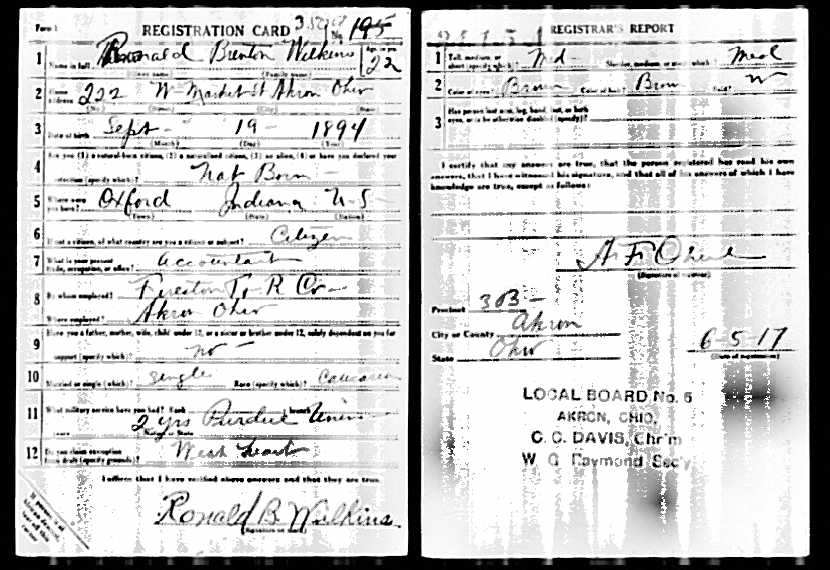 Form 1 REGISTRATION CARD No. 195
1 Name in full Ronald Brenton Wilkins Age, in yrs. 22
(Given name) (Family name)
2 Home address 222 W Market St Akron Ohio
(No.) (Street) (City) (State)
3 Date of birth Sept - 19 - 1894
(Month) (Day) (Year)
4 Are you (1) a natural-born citizen, (2) a naturalized citizen, (3) an alien, (4) or have you declared your
intention (specify which)? Nat Born -
5 Where were you born? Oxford Indiana U-S
(Town) (State) (Nation)
6 If not a citizen, of what country are you a citizen or subject? Citizen
7 What is your present trade, occupation, or office? Accountant
8 By whom employed? Firestone T. R Co -
Where employed? Akron Ohio
9 Have you a father, mother, wife, child under 12, or a sister or brother under 12, solely dependent on you for
support (specify which)? no -
10 Married or single (which)? Single Race (specify which)? Caucasian
11 What military service have you had? Rank branch
years 2 yrs Purdue Univer Nation or State
12 Do you claim exemption from draft (specify grounds)? Weak heart
I affirm that I have verified above answers and that they are true.
Ronald B. Wilkins
(Signature or mark)
If person is of African descent, tear off this corner
REGISTRAR'S REPORT
1 Tall, medium, or short (specify which)? Md - Slender, medium, or stout (which)? Med
2 Color of eyes? Brown Color of hair? Brown Bald? N
3 Has person lost arm, leg, hand, foot, or both
eyes, or is he otherwise disabled (specify)?
I certify that my answers are true, that the person registered has read his own
answers, that I have witnessed his signature, and that all of his answers of which I have
knowledge are true, except as follows:
A. F.
(Signature of registrar)
Precinct 3 B -
City or County Akron
State Ohio
6-5-17
(Date of registration)
LOCAL BOARD No. 5
AKRON, OHIO,
C. C. DAVIS, Chr'm
W. G. Raymond Sec'y